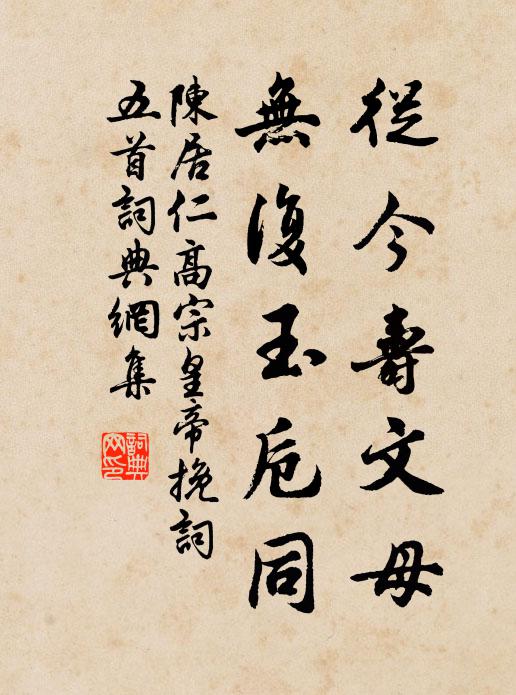 從今壽文母
無復玉卮同
陳居仁高宗皇帝挽詞
五首詞典網集
詞典網印